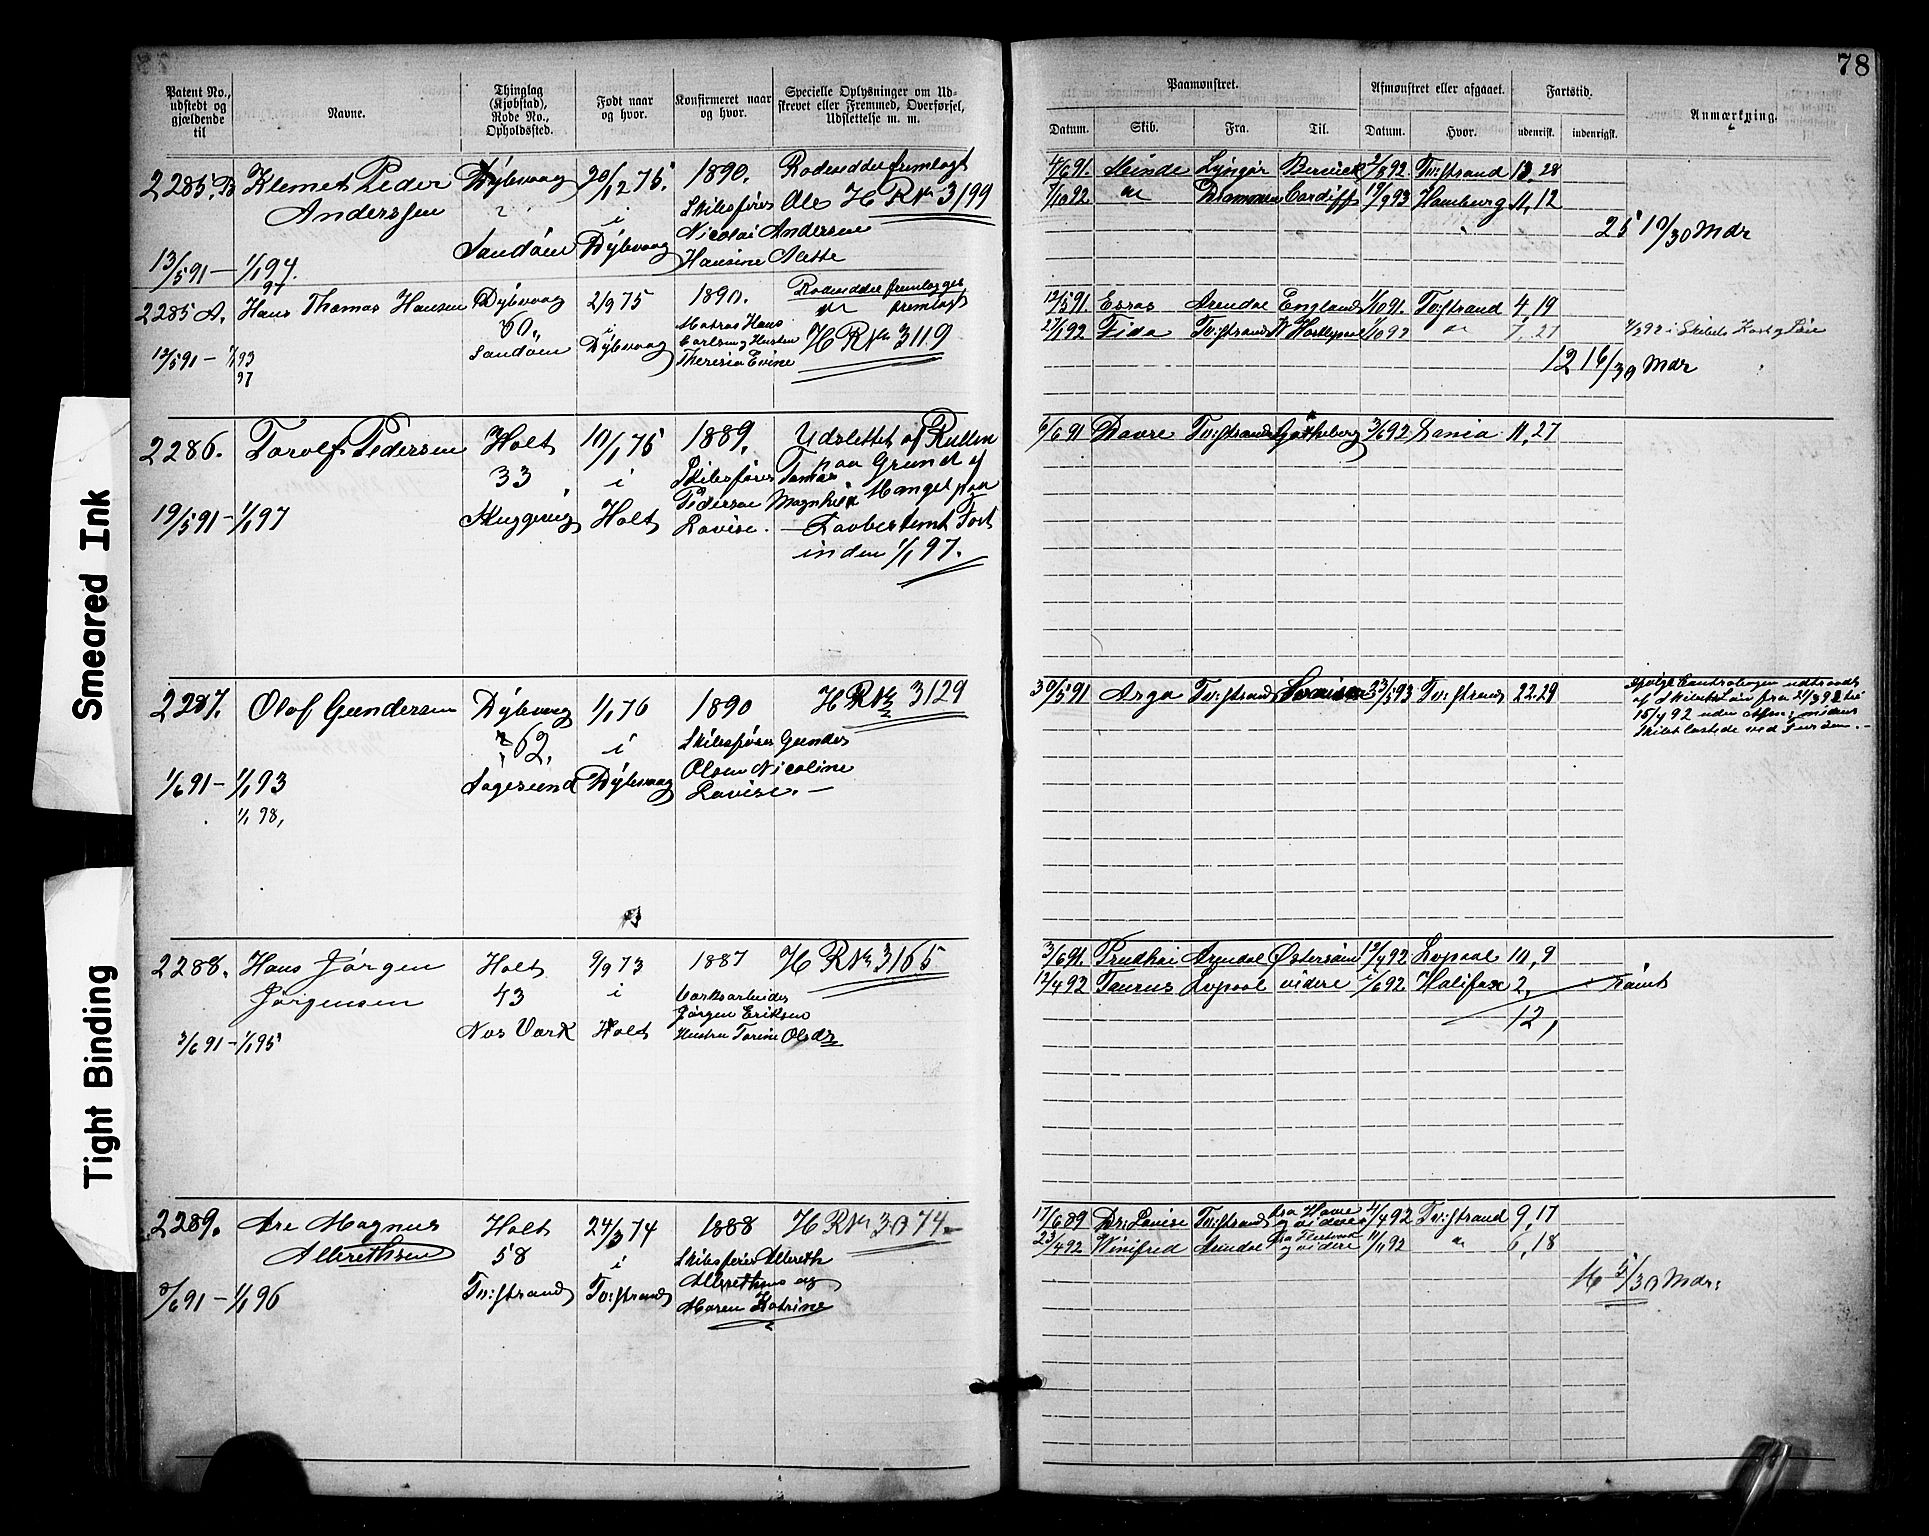 78
Patent No., udstedt og gjældende til
Navne.
Thinglag (Kjøbstad), Rode No., Opholdssted.
Født naar og hvor.
Konfirmeret naar og hvor.
Specielle Oplysninger om Udskrevet eller Fremmed, Overførsel, Udslettelse m. m.
Paamønstret.
Afmønstret eller afgaaet.
Fartstid.
Anmærkning.
Datum. Skib. Fra. Til. Datum. Hvor. udenrigsk. indenrigsk.
2285 B Klemet Peder Dybvaag 20/12 75. 1890. Rodeseddel fremlagt
Anderssen i Skibsfører Ole H R No 3199
Sandøen Dybvaag Nicolai Andersen
13/5 91 – 1/1 94. Hansine Alette
97
4/6 91. Lyngør 2/8 92 Tvedestrand 13, 28
7/10 92 Drammen Cardiff 19/9 93 Hamburg 11, 12
25 10/30 Mdr
2285 A. Hans Thomas Hansen Dybvaag 2/9 75 1890. Rodeseddel fremlægges
60. i Matros Hans fremlagt
Sandøen Dybvaag Carlsen og Hustru H R No 3119
12/5 91 – 1/1 93 Theresia Evine
97
12/5 91. Esras Arendal England 1/10 91. Tvedestrand 4, 19
27/1 92 Fida Tvedestrand W Hartlepool 1/10 92 7, 27
12 16/30 Mdr
2286. Torolf Pedersen Holt 10/1 75 1889. Udslettet af Rullen
33 i Skibsfører Tomas paa Grund af
19/5 91 – 1/1 97 Holt Pedersen Magnhild Mangel paa
Lovise. – Lovbestemt Fart
inden 1/1 97.
6/6 91 Dovre Tvedestrand Gøtheborg 3/6 92 Dania 11, 27
2287. Olaf Gundersen Dybvaag 1/1 76 1890 H R No 3129
62. i Skibsfører Gunder
1/6 91 – 1/1 93 Sagesund Dybvaag Olsen Nicoline
1/1 98, Lovise. –
30/5 91 Argo Tvedestrand 23/5 93 Tvedestrand 22.29
2288. Hans Jørgen Holt 9/9 73 1887 H R No 3165
Jørgensen 43 i Værksarbeider
Jørgen Eriksen
3/6 91 – 1/1 95 Næs Værk Holt Hustru Torine Olsdr
3/6 91. Arendal Østersøen 12/4 92 Lvpool 10, 9
12/4 92 Taurus Lvpool videre 1/6 92 Halifax 2, Rømt
12,
2289. Are Magnus Holt 24/3 74 1888 H R No 3074.
Albrethsen 58 i Skibsfører Albreth
Albrethsen og
3/6 91 – 1/1 96 Tvedestrand Tvedestrand Maren Katrine
17/6 89 Lovise Tvedestrand fra Havre og videre 2/4 92 Tvedestrand 9, 17
23/4 92 Winifred Arendal og videre 11/11 92 6, 18
16 5/30 Mdr.
Smeared Ink
Tight Binding